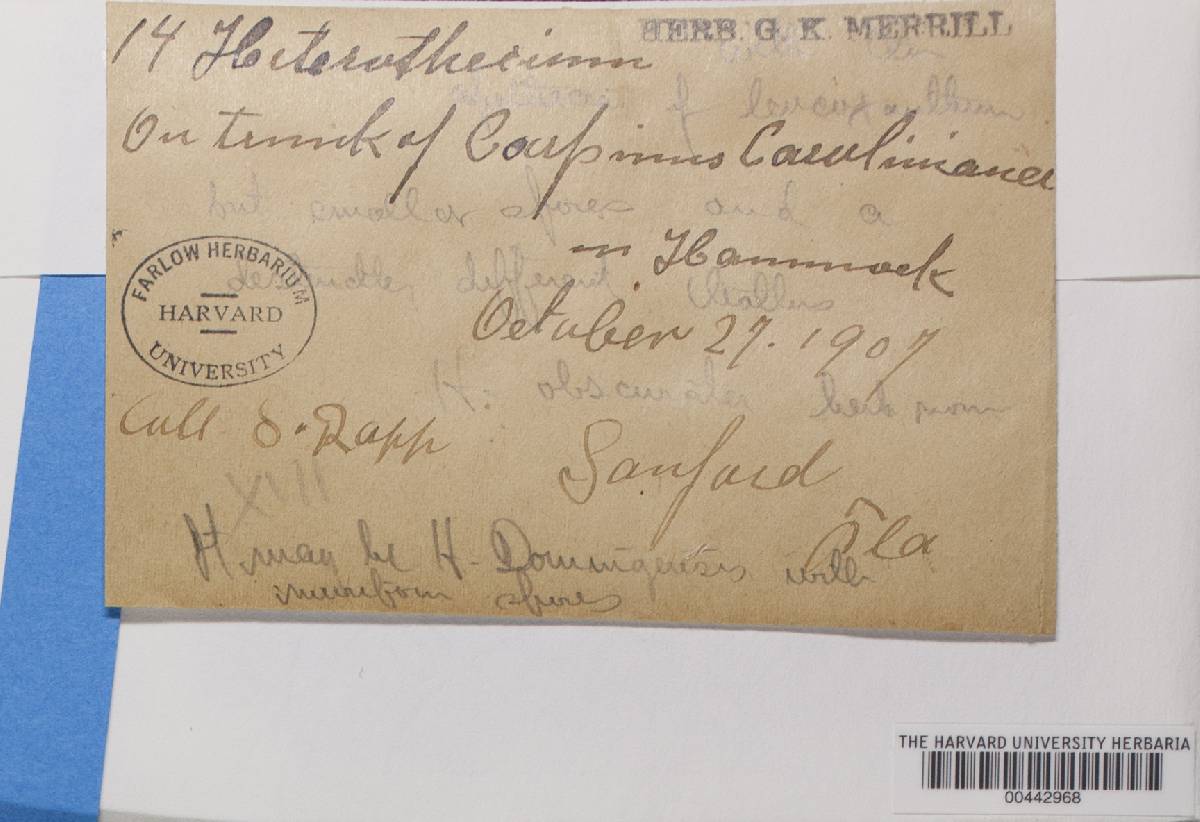 HERB. G. K. MERRILL
14 Heterothecium
of leucoxanthum
On trunk of Carpinus Caroliniana
but smaller spores and a
in Hammock
different thallus
October 27. 1907
H. obscurata
FARLOW HERBARIUM
HARVARD
UNIVERSITY
Coll S. Rapp
Sanford
Fla
XIII
It may be H. Domingensis with
muriform spores
THE HARVARD UNIVERSITY HERBARIA
00442968